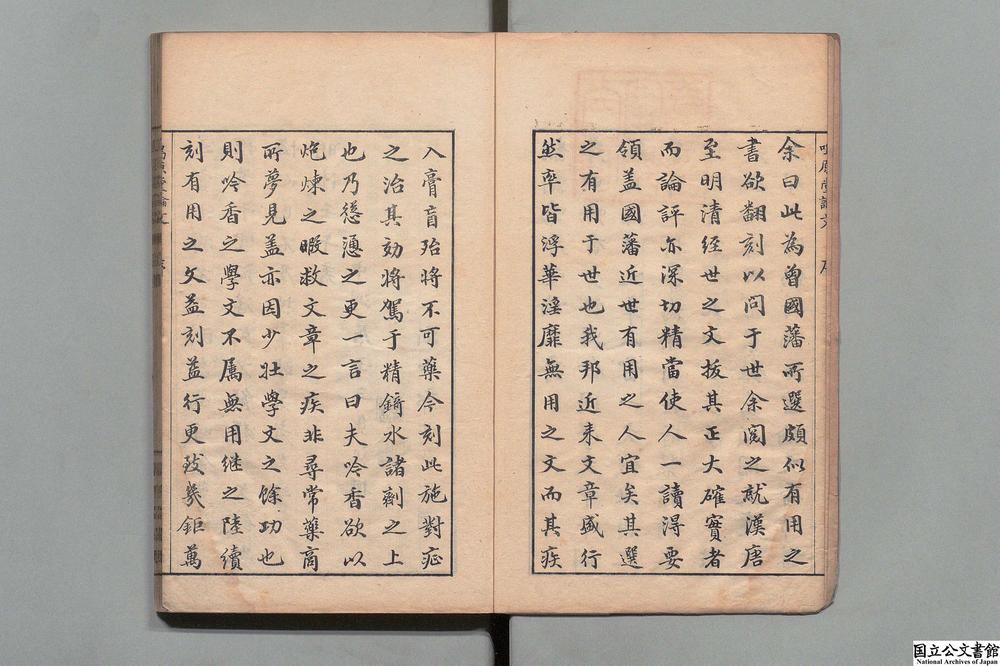 余曰此為曾國藩所選頗似有用之
書欲翻刻以問于世余閲之就漢唐
至明清經世之文抜其正大確實者
而論評亦深切精當使人一讀得要
領盖國藩近世有用之人宜矣其選
之有用于世也我邦近来文章盛行
然率皆浮華淫靡無用之文而其疾
入膏肓殆将不可藥今刻此施對症
之治其効将駕于精錡水諸劑之上
也乃慫慂之更一言曰夫吟香欲以
炮煉之暇救文章之疾非尋常藥商
所夢見盖亦因少壮學文之餘功也
則吟香之學文不属無用継之陸續
刻有用之文益刻益行更致幾鉅萬
国立公文書館
National Archives of Japan